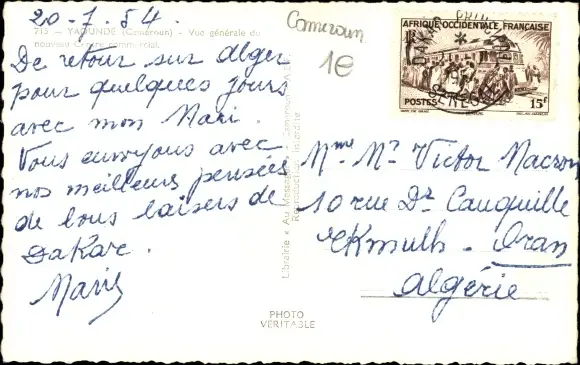 20-7.54.
715 - YAOUNDÉ (Cameroun) - Vue générale du
nouveau Centre commercial.
De retour sur Alger
pour quelques jours
avec mon Mari.
Vous envoyons avec
nos meilleurs pensées
de bons baisers de
Dakar.
Cameroun
1€
AFRIQUE OCCIDENTALE FRANÇAISE
POSTES
15f
DAKAR
SENEGAL
Mme Mr Victor Macron
10 rue Dr Cauquille
Eckmulh - Oran
Algérie
Librairie « Au Messager » - Cameroun
Reproduction interdite
PHOTO
VÉRITABLE